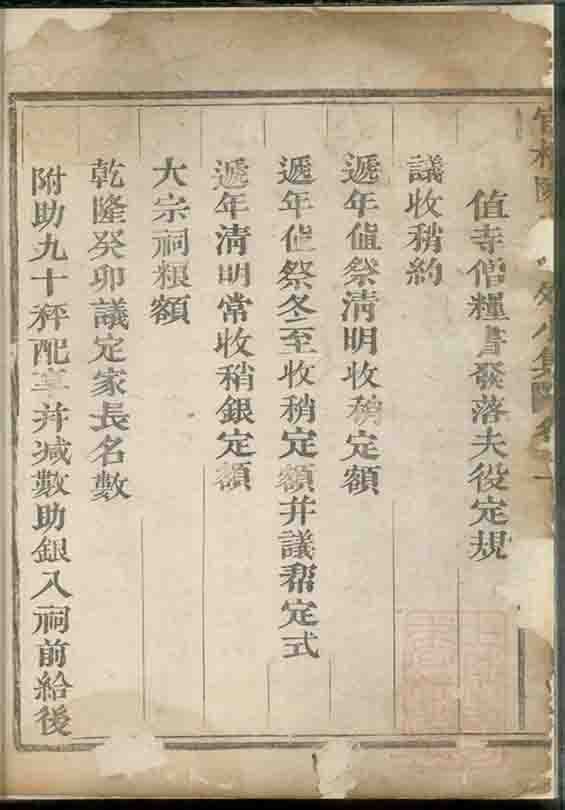 值寺僧糧書發落夫役定規
議收稍約
遞年值祭清明收稍定額
遞年值祭冬至收稍定額并議帮定式
遞年清明常收稍銀定額
大宗祠粮額
乾隆癸卯議定家長名數
附助九十秤配享并減數助銀入祠前給後